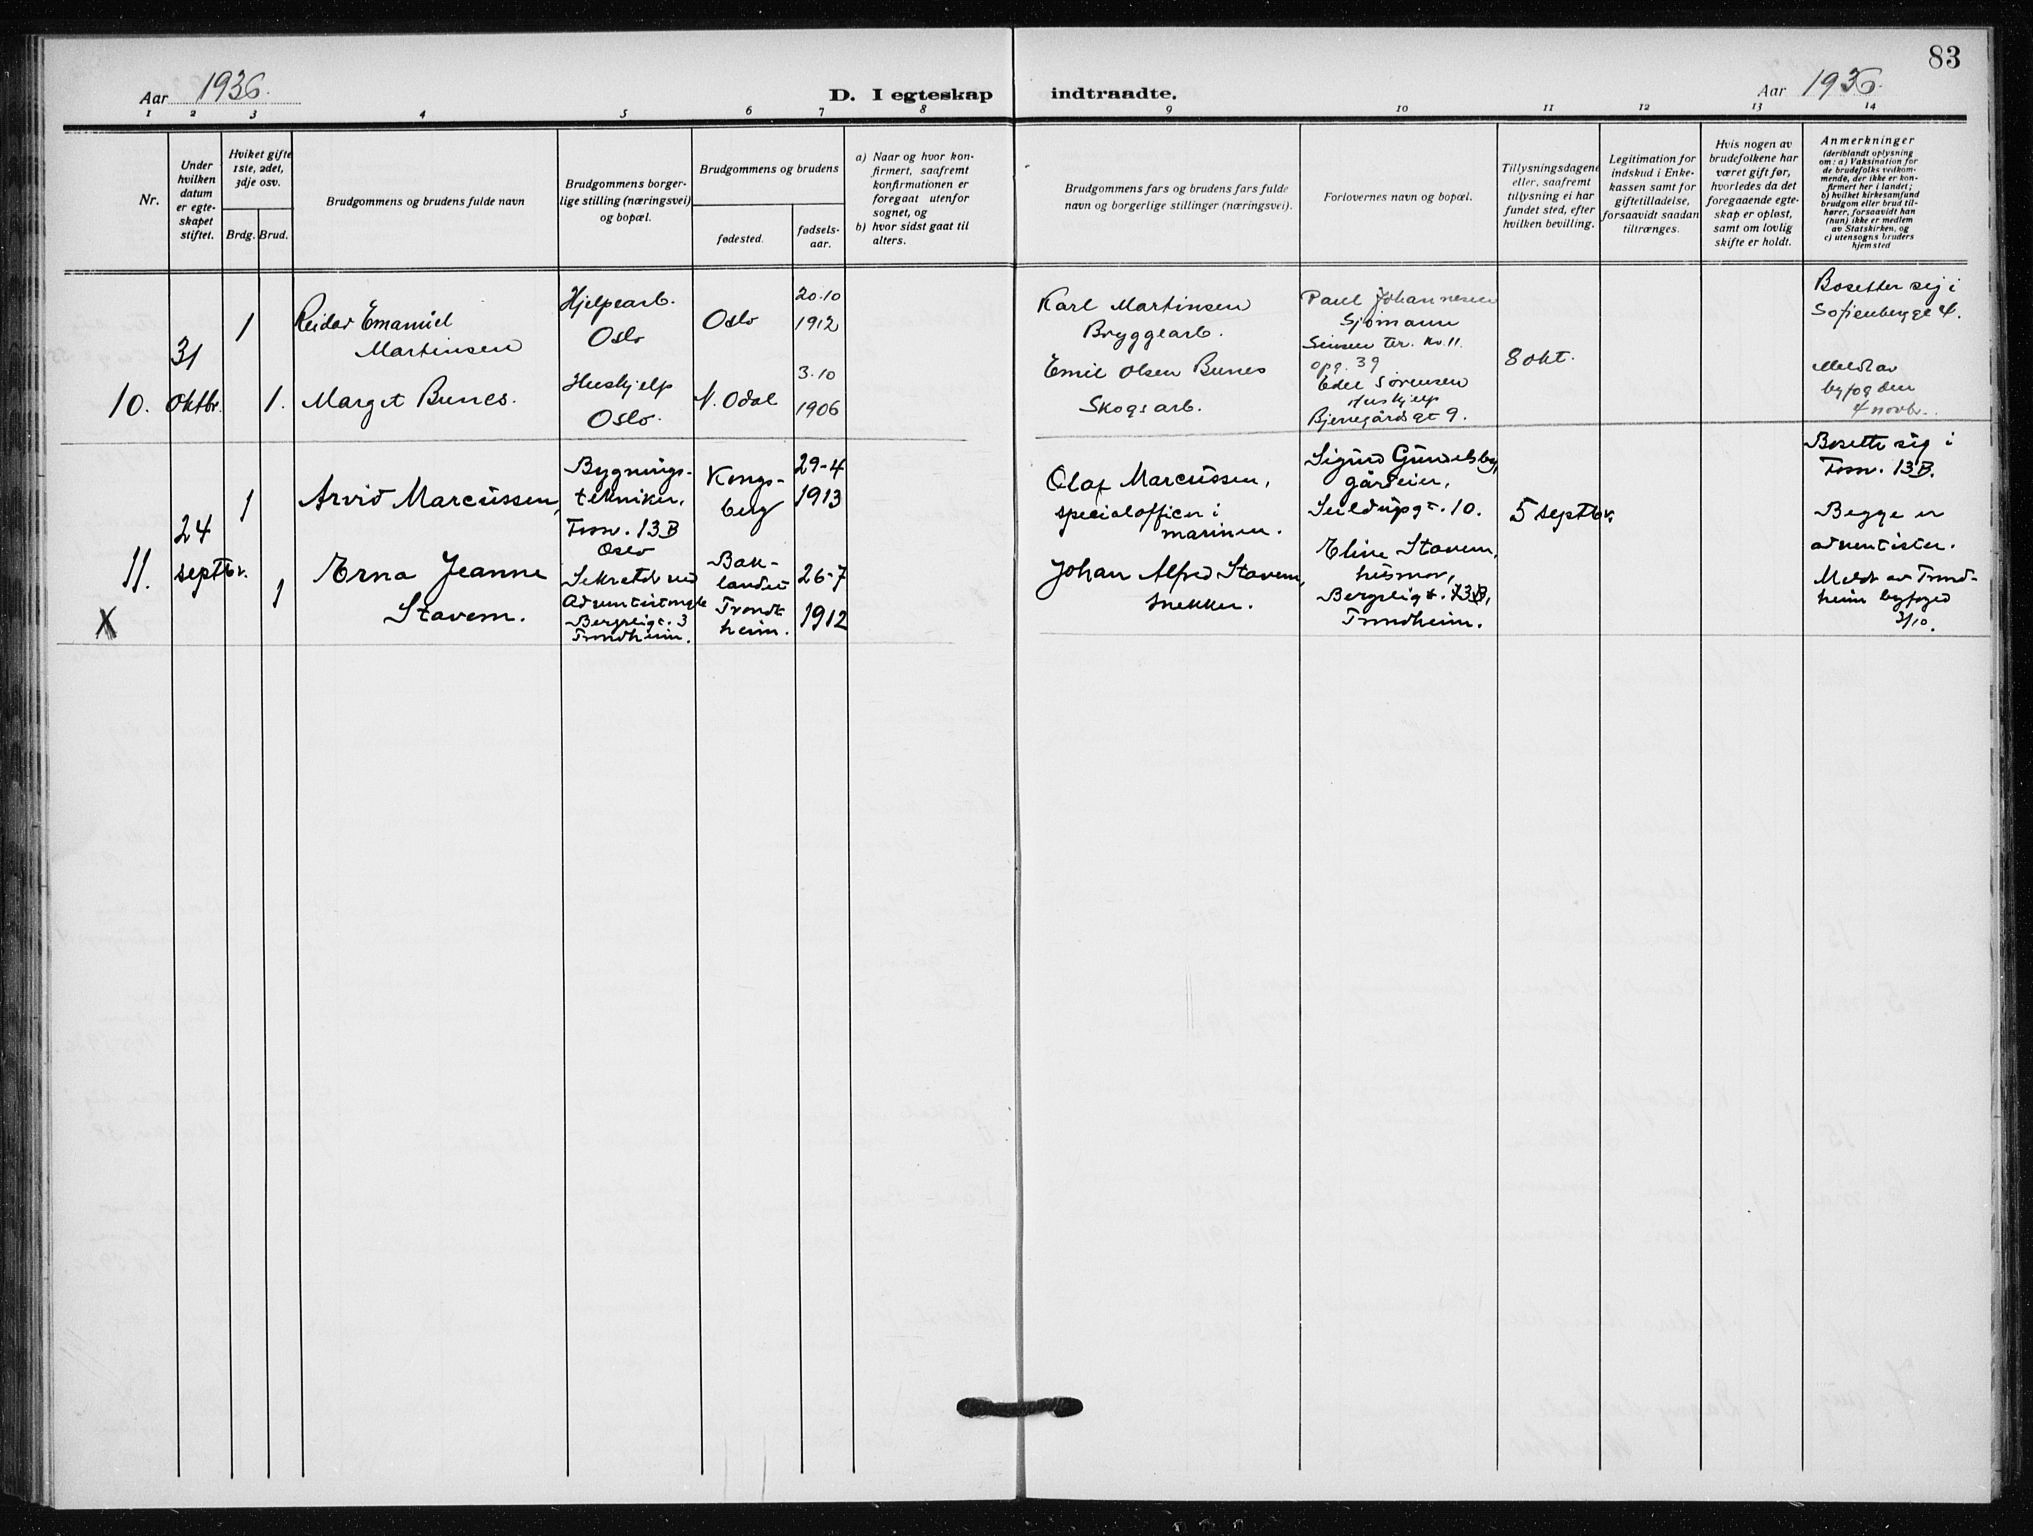 83
Aar 1936.
D. I egteskap indtraadte.
Aar 1936.
1 2 3 4 5 6 7 8 9 10 11 12 13 14
Nr.
Under hvilken datum er egteskapet stiftet.
Hviket gifte 1ste, 2det, 3dje osv.
Brdg. Brud.
Brudgommens og brudens fulde navn
Brudgommens borgerlige stilling (næringsvei) og bopæl.
Brudgommens og brudens
fødested.
fødselsaar.
a) Naar og hvor konfirmert, saafremt konfirmutionen er foregaat utenfor sognet, og
b) hvor sidst gaat til alters.
Brudgommens fars og brudens fars fulde navn og borgerlige stillinger (næringsvei).
Forlovernes navn og bopæl.
Tillysningsdagene eller, saafremt tillysning ei har fundet sted, efter hvilken bevilling.
Legitimation for indskud i Enkekassen samt for giftetilladelse, forsaavidt saadan tiltrænges.
Hvis nogen av brudefolkene har været gift før, hvorledes da det foregaaende egteskap er opløst, samt om lovlig skifte er holdt.
Anmerkninger
(deriblandt oplysning om: a) Vaksination for de brudefolks vedkommende, der ikke er konfirmert her i landet; b) hvilket kirkesamfund brudgom eller brud tilhører, forsaavidt han (hun) ikke er medlem av Statskirken, og c) utensogns bruders hjemsted
10.
31
oktbr.
1
Reidar Emanuel
Martinsen
Hjelpearb.
Oslo
Oslo
20.10
1912
Karl Martinsen
Bryggearb.
Paul Johannesen
Sjømann
Sinsen ter. Nv. 11.
opg. 39
8 okt.
Bosetter sej i
Sofienbergg 4.
1.
Marget Bunes.
Huskjelp
Oslo.
N. Odal
3.10
1906
Emil Olsen Bunes
Skogsarb.
Edel Sørensen
Huskjelp
Bjerregårdsgt 9.
Meldt av
byfogden
4 novbr.
11.
X
24
septbr.
1
Arvid Marcussen,
Bygnings-
tekniker,
Tosv. 13B
Oslo
Kongs-
berg
29-4
1913
Olaf Marcussen,
specialofficer i
marinen.
Sigurd Gundelsby,
gårdeier,
Seildugsgt. 10.
5 septbr.
Bosette sig i
Tosv. 13B.
Begge er
adventister.
Meldt av Trond-
heim byfoged
3/10.
1
Erna Jeanne
Stavem.
Sekretær ved
Adventistmgh
Bergsligt. 3
Trondheim.
Bak-
landet
Trondh
heim.
26-7
1912
Johan Alfred Stavem,
snekker.
Eline Stavem,
husmor,
Bergsligt. 13B,
Trondheim.